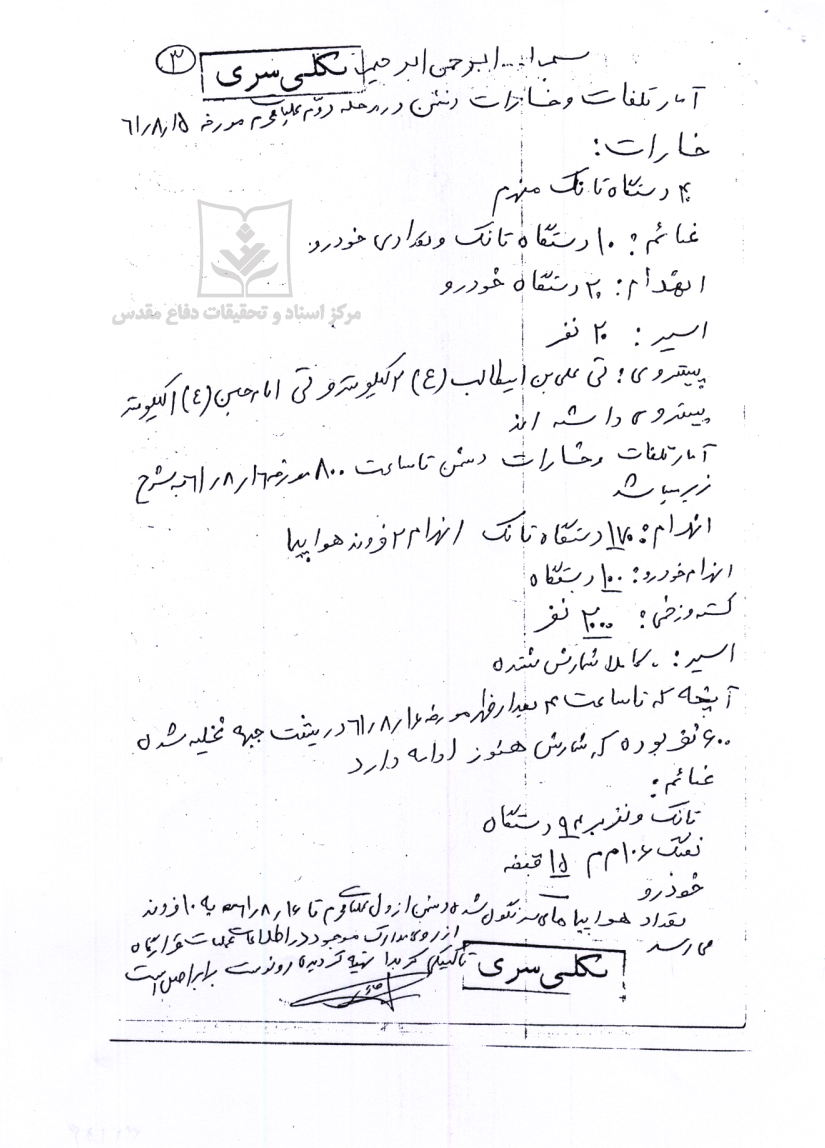 ۳
بسم الله الرحمن الرحیم
بکلی سری
آمار تلفات و خسارات دشمن در مرحله دوم عملیات محرم مورخه ۶۱٫۸٫۱۵
خسارات:
۴ دستگاه تانک منهدم
غنائم: ۱۰ دستگاه تانک و تعدادی خودرو
مرکز اسناد و تحقیقات دفاع مقدس
انهدام: ۲ دستگاه خودرو
اسیر: ۲۰ نفر
پیشروی: تی علی بن ابیطالب (ع) ۲ کیلومتر و تی امام حسین (ع) ۱ کیلومتر
پیشروی داشته اند
آمار تلفات و خسارات دشمن تا ساعت ۸۰۰ مورخه ۶۱٫۸٫۱۶ به شرح
زیر میباشد
انهدام: ۱۷۰ دستگاه تانک انهدام ۲ فروند هواپیما
انهدام خودرو: ۱۰۰ دستگاه
کشته و زخمی: ۲۰۰۰ نفر
اسیر: کاملا شمارش نشده
آنچه که تا ساعت ۴ بعدازظهر مورخه ۶۱٫۸٫۱۶ در پشت جبهه تخلیه شده
۶۰۰ نفر بوده که شمارش هنوز ادامه دارد
غنائم:
تانک و نفربر ۹۴ دستگاه
تفنگ ۱۰۶ م م ۱۵ قبضه
خودرو
تعداد هواپیما های سرنگون شده دشمن از اول عملیات محرم تا ۶۱٫۸٫۱۶ به ۱۰ فروند
می رسد
از روی مدارک موجود در اطلاعات عملیات قرارگاه
تاکتیکی کربلا تهیه گردیده رونوشت برابر اصل است
بکلی سری